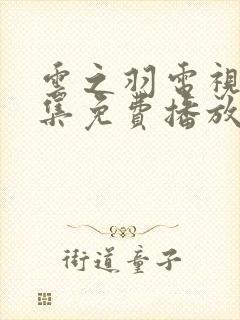 雲之羽電視
集免費播放
街道童子